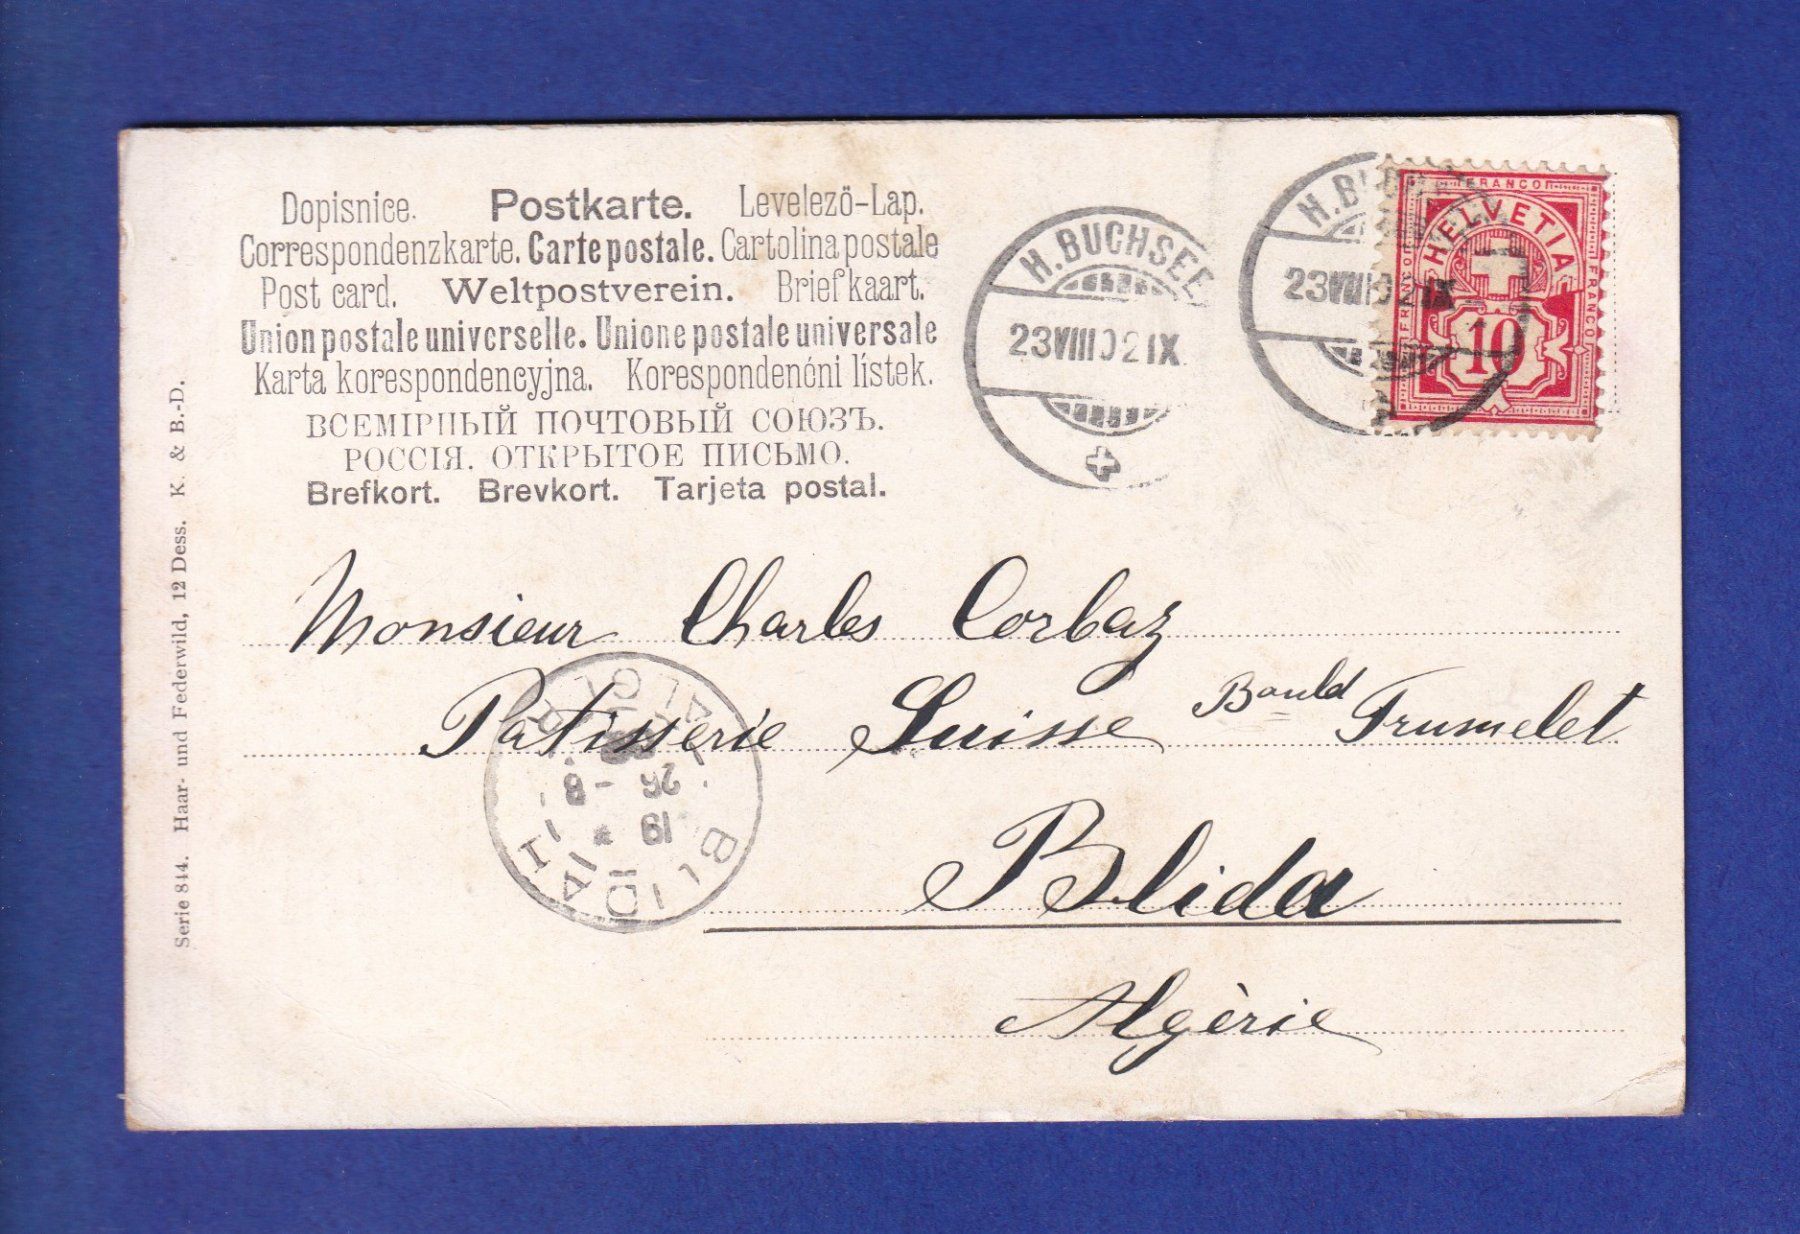 Dopisnice. Postkarte. Levelezö-Lap.
Correspondenzkarte. Carte postale. Cartolina postale
Post card. Weltpostverein. Briefkaart.
Union postale universelle. Unione postale universale
Karta korespondencyjna. Korespondenćni lístek.
ВСЕМІРНЫЙ ПОЧТОВЫЙ СОЮЗЪ.
РОССІЯ. ОТКРЫТОЕ ПИСЬМО.
Brefkort. Brevkort. Tarjeta postal.
H. BUCHSEE
23 VIII 02 IX
H. BUC
23 VIII 02 IX
FRANCO
HELVETIA
FRANCO
FRANCO
10
Monsieur Charles Corbaz
Patisserie Suisse Bould Trumelet
Blida
Algérie
BLIDAH
ALGER
26 - 8
19
Serie 844. Haar- und Federwild, 12 Dess. K. & B.-D.